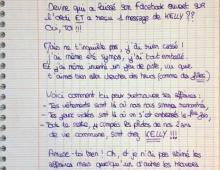 Devine qui a laissé son Facebook ouvert sur
l'ordi ET a reçu 1 message de KELLY ??
Oui, toi !!!
Mais ne t'inquiète pas, j'ai rien cassé !
j'ai même été sympa, j'ai tout emballé
Et j'ai même inventé un jeu de piste, vu que
t'aimes bien aller chercher des trucs (comme des filles).
Voici comment tu peux retrouver tes affaires :
- Tes vêtements sont là où nous nous sommes rencontrés,
- Tes jeux vidéos sont là où on s'est embrassés la 1ère fois,
- Tout le reste, y compris les photos de nos 2 ans
de vie commune, sont chez KELLY !!!
Amuse-toi bien ! Oh, et je n'ai pas abîmé tes
affaires mais quelqu'un d'autre les trouvera